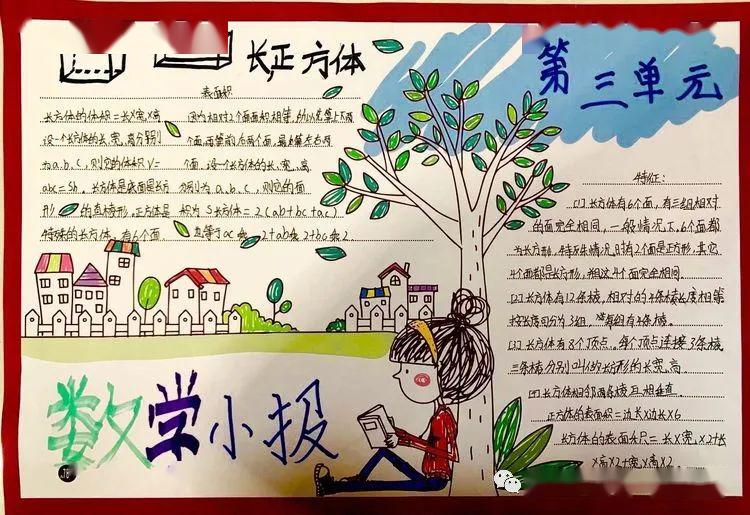 长,正方体
第三单元
表面积
长方体的体积=长X宽X高
因为相对2个面面积相等,所以先算上下两
设一个长方体的长、宽、高分别
个面,再算前后两个面,最后算左右两
为a.b.c,则它的体积V=
个面.设一个长方体的长、宽、高
abc=Sh.长方体是底面是长方
分别为a.b.c,则它的面
形的直棱形,正方体是
积为S长方体=2(ab+bc+ac)
特殊的长方体,有6个面.
2+ab乘2+bc乘2
特征:
[1]长方体有6个面,有三组相对
的面完全相同,一般情况下,6个面都
为长方形,特殊情况,时有2个面是正方形,其它
4个面都是长方形,并且这4个面完全相同.
[2]长方体有12条棱,相对的4条棱长度相等
按长度可分为3组,每组有4条棱.
[3]长方体有8个顶点.每个顶点连接3条棱
三条棱分别叫做长方形的长.宽、高.
[4]长方体相邻两条棱互相垂直.
正方体的表面积=边长X边长X6
长方体的表面尺=长X宽X2+长
X高X2+宽X高X2.
数学小报